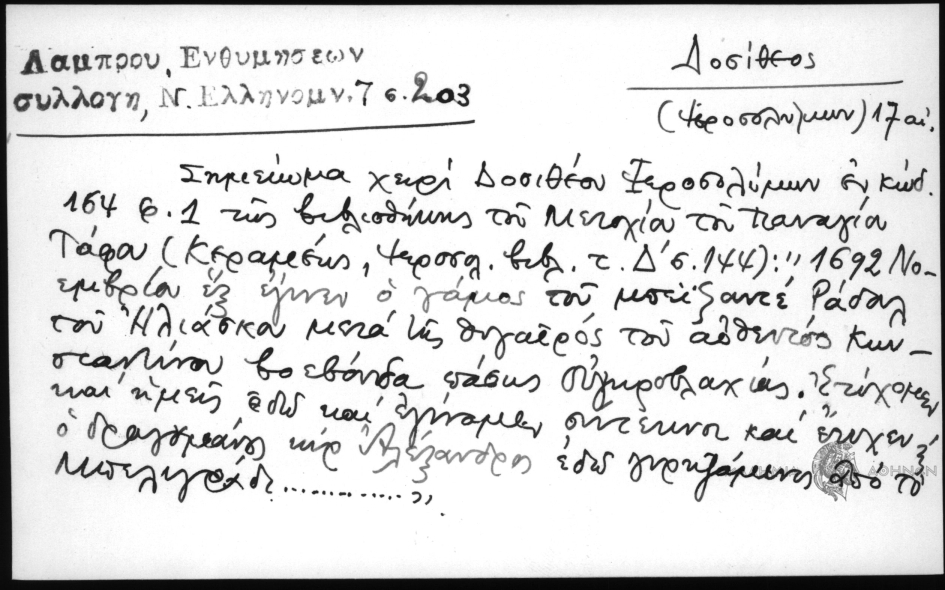 Λαμπρου, Ενθυμησεων
συλλογη, Ν. Ελληνομν. 7 σ. 203
Δοσίθεος
(Ἱεροσολύμων) 17 αἰ.
Σημείωμα χειρί Δοσιθέου Ἱεροσολύμων ἐν κώδ.
164 φ. 1 τῆς βιβλιοθήκης τοῦ Μετοχίου τοῦ Παναγίου
Τάφου (Κεραμεύς, Ἱεροσολ. βιβλ. τ. Δ΄ σ. 144): "1692 Νο-
εμβρίου ἕξ ἔγινεν ὁ γάμος τοῦ μπεϊζαντέ Ράδουλ
τοῦ Ἠλιάσκου μετά τῆς θυγατρός τοῦ αὐθεντός Κων-
σταντίνου βοεβόνδα πάσης Οὐγκροβλαχίας. Ἐτύχομεν
καί ἡμεῖς ἐδῶ καί ἐγίναμεν σύντεκνοι καί ἔτυχεν
ὁ δραγομάνος κύρ Ἀλέξανδρος ἐδῶ ἐξ
ἀπό τό
Μπελιγράδι .............."
ΑΘΗΝΩΝ